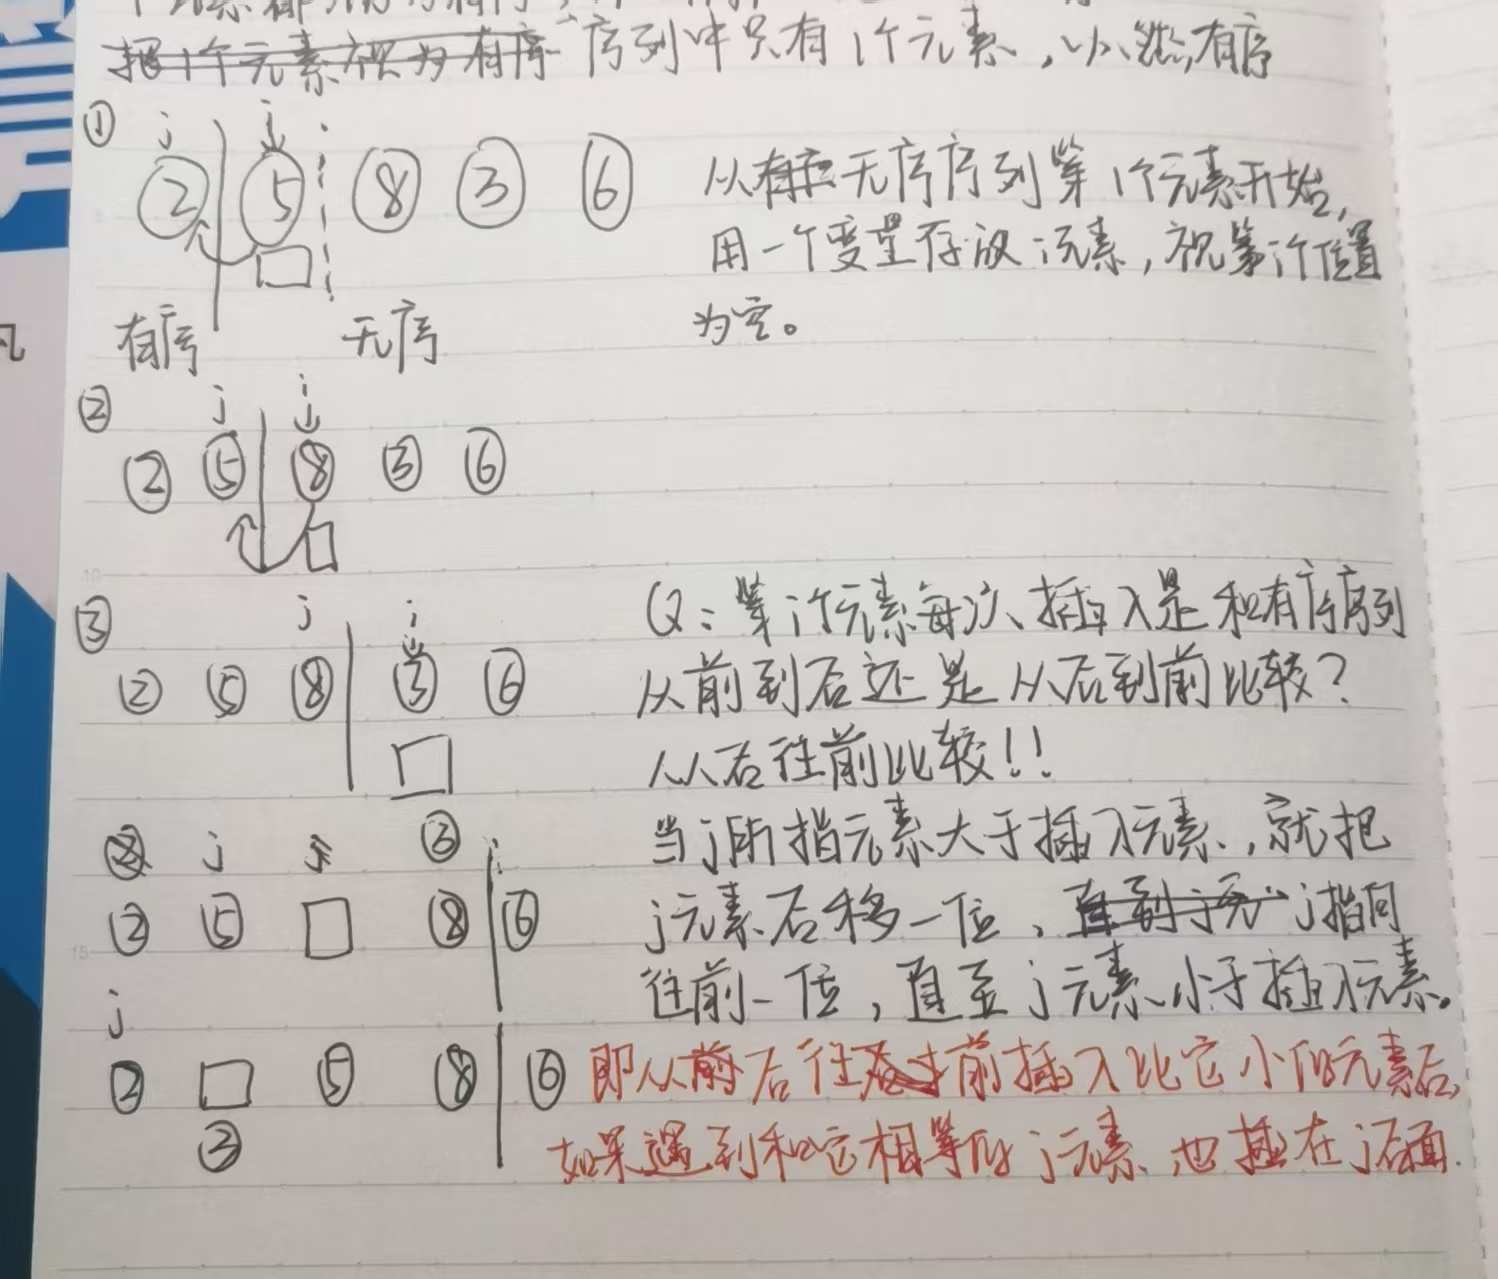 把1个元素视为有序 序列中只有1个元素，必然有序
① j i
2 5 8 3 6
从有序无序序列第1个元素开始，
用一个变量存放i元素，视第i个位置
为空。
有序 无序
② j i
2 5 8 3 6
③ j i
2 5 8 3 6
Q：第i个元素每次插入是和有序序列
从前到后还是从后到前比较？
从后往前比较！！
j 3 i
2 5 8 6
j
2 5 8 6
3
当j所指元素大于插入元素，就把
j元素后移一位，直到j元 j指向
往前一位，直至j元素小于插入元素。
即从前后往前插入比它小的元素后，
如果遇到和它相等的j元素，也插在j后面.
凡
10
15